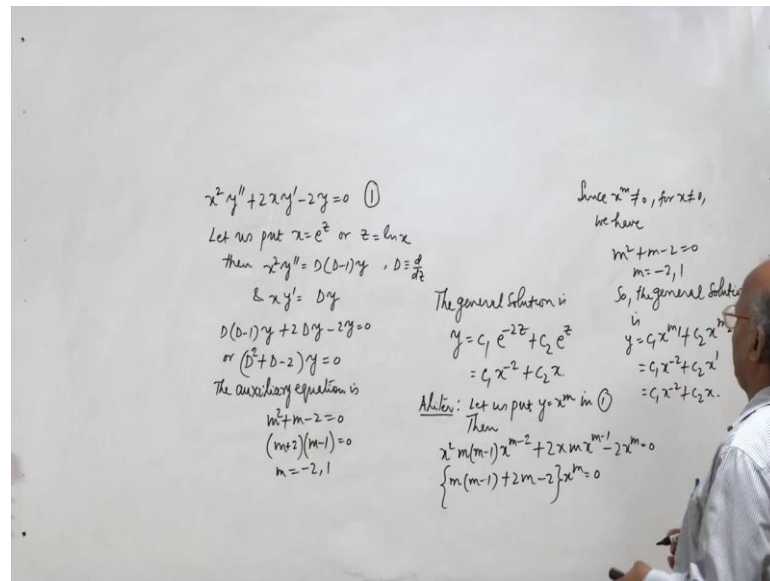 x² y'' + 2xy' - 2y = 0 ①
Let us put x = e^z or z = ln x
then x² y'' = D(D-1)y , D ≡ d/dz
& xy' = Dy
D(D-1)y + 2Dy - 2y = 0
or (D² + D - 2) y = 0
The auxiliary equation is
m² + m - 2 = 0
(m+2)(m-1) = 0
m = -2, 1
The general solution is
y = c₁ e^{-2z} + c₂ e^z
= c₁ x^{-2} + c₂ x.
Aliter: Let us put y = x^m in ①
Then
x² m(m-1) x^{m-2} + 2x m x^{m-1} - 2x^m = 0
{m(m-1) + 2m - 2} x^m = 0
Since x^m ≠ 0, for x ≠ 0,
we have
m² + m - 2 = 0
m = -2, 1
So, the general
is
y = c₁ x^{m₁} + c₂ x^m
= c₁ x^{-2} + c₂ x^1
= c₁ x^{-2} + c₂ x.